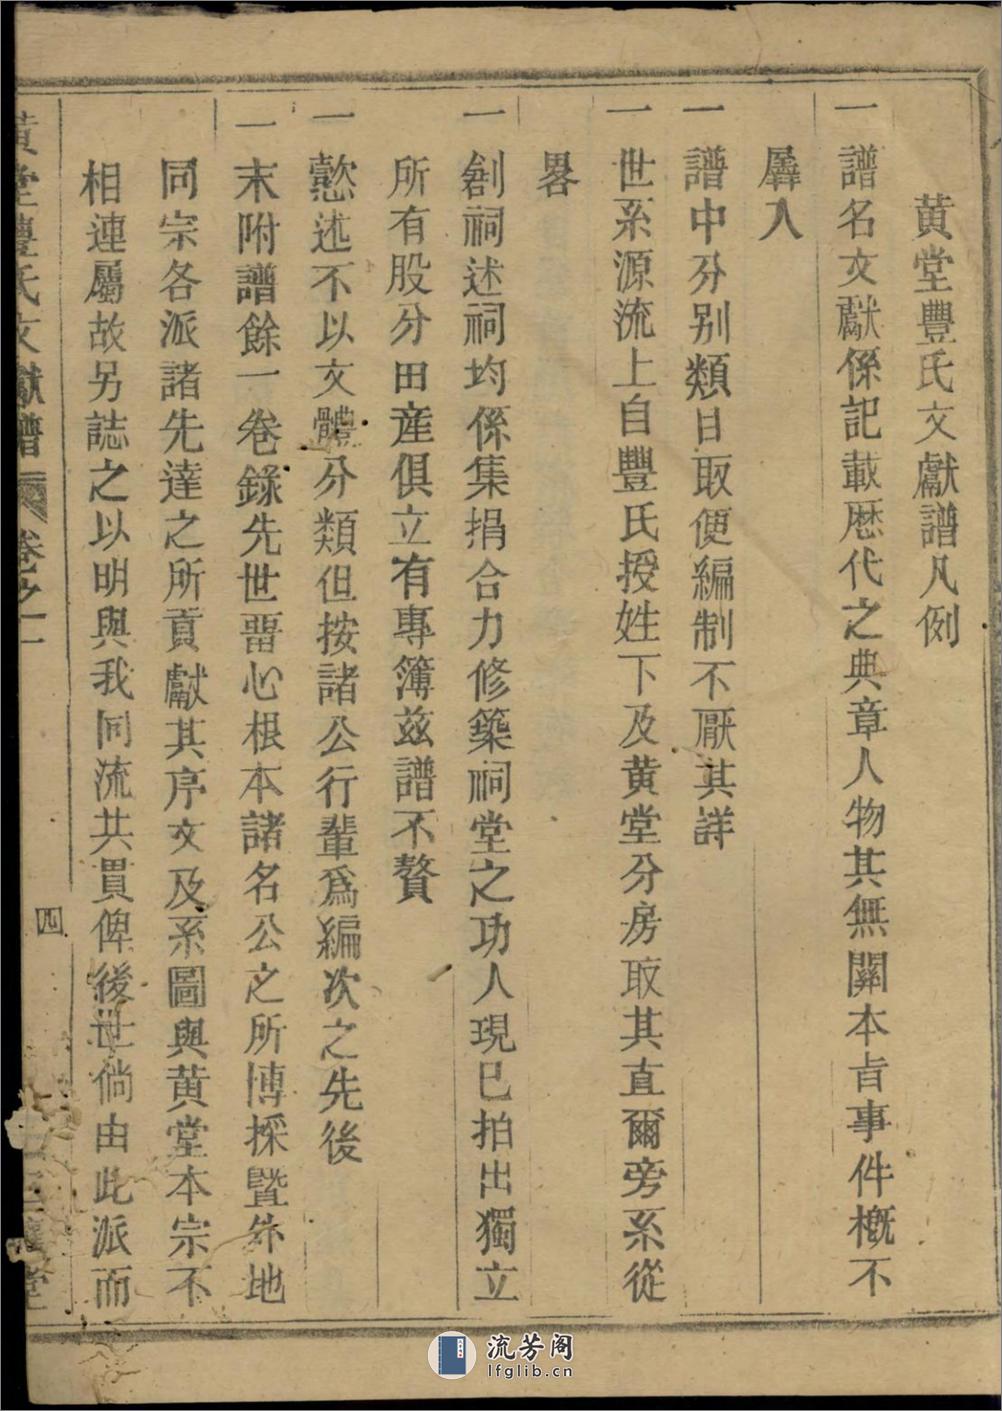 黃堂豐氏文獻譜凡例
一譜名文獻係記載歷代之典章人物其無關本旨事件槪不
羼入
一譜中分别類目取便編制不厭其詳
一世系源流上自豐氏授姓下及黃堂分房取其直爾旁系從
畧
一創祠述祠均係集捐合力修築祠堂之功人現已拍出獨立
所有股分田產俱立有專簿兹譜不贅
一懿述不以文體分類但按諸公行輩爲編次之先後
一末附譜餘一卷錄先世畱心根本諸名公之所博採暨外地
同宗各派諸先達之所貢獻其序文及系圖與黃堂本宗不
相連屬故另誌之以明與我同流共貫俾後世倘由此派而
黃堂豐氏文獻譜 卷之一 四 堂
流芳阁
lfglib.cn